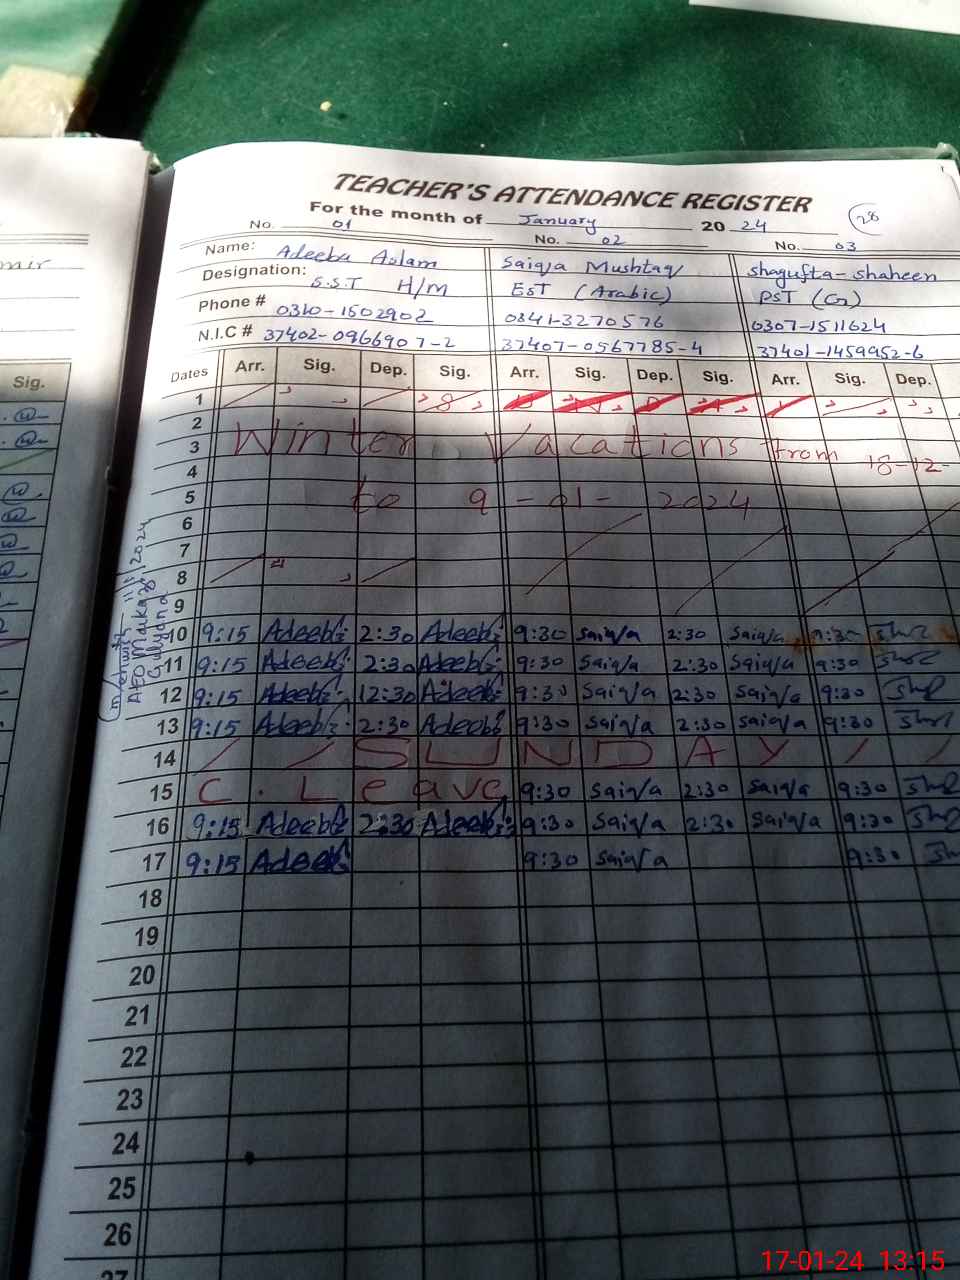 TEACHER'S ATTENDANCE REGISTER
For the month of January 2024 28
No. 01 No. 02 No. 03
Name: Adeeba Aslam Saiqa Mushtaq Shagufta Shaheen
Designation: S.S.T H/M EST (Arabic) PST (Gr)
Phone # 0310-1502902 0341-3270576 0307-1511624
N.I.C # 37402-0966907-2 37407-0567785-4 37401-1459952-6
Dates Arr. Sig. Dep. Sig. Arr. Sig. Dep. Sig. Arr. Sig. Dep.
Sig.
1
2
3 Winter Vacations from 18-12-
4
5 to 9-01-2024
6
7
8
9
10 9:15 Adeeba 2:30 Adeeba 9:30 Saiqa 2:30 Saiqa 9:30
11 9:15 Adeeba 2:30 Adeeba 9:30 Saiqa 2:30 Saiqa 9:30
12 9:15 Adeeba 12:30 Adeeba 9:30 Saiqa 2:30 Saiqa 9:30
13 9:15 Adeeba 2:30 Adeeba 9:30 Saiqa 2:30 Saiqa 9:30
14 SUNDAY
15 C. Leave 9:30 Saiqa 2:30 Saiqa 9:30
16 9:15 Adeeba 2:30 Adeeba 9:30 Saiqa 2:30 Saiqa 9:30
17 9:15 Adeeba 9:30 Saiqa 9:30
18
19
20
21
22
23
24
25
26
27
AEO Markaz
Gulyana
17-01-24 13:15